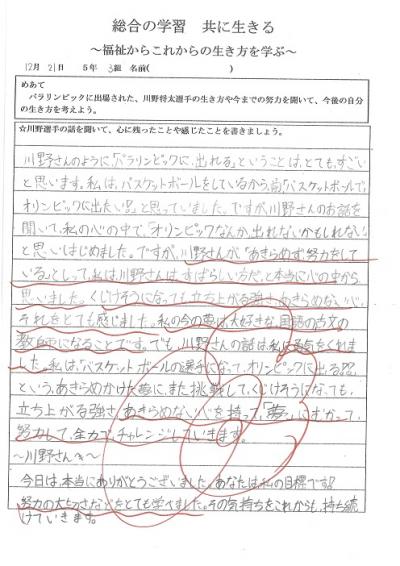 総合の学習 共に生きる
～福祉からこれからの生き方を学ぶ～
12月21日 5年3組 名前( )
めあて
パラリンピックに出場された、川野将太選手の生き方や今までの努力を聞いて、今後の自分
の生き方を考えよう。
☆川野選手の話を聞いて、心に残ったことや感じたことを書きましょう。
川野さんのように「パラリンピックに、出れる」ということは、とても、すごい
と思います。私は、バスケットボールをしているから、前「バスケットボールで、
オリンピックに出たい!!」と思っていました。ですが、川野さんのお話を
聞いて、私の心の中で、「オリンピックなんか、出れないかもしれない」
と思いはじめました。ですが、川野さんが「あきらめず、努力をして
いる」としって、私は、川野さんは、すばらしい方だと本当に心の中から
思いました。くじけそうになっても立ち上がる強さ、あきらめない心、
それをとても感じました。私の今の夢は、大好きな、国語の古文の
教師になることです。でも、川野さんの話は、私に勇気をくれま
した。私は、「バスケットボールの選手になって、オリンピックに出る!!」
という、あきらめかけた夢に、また挑戦して、くじけそうになっても、
立ち上がる強さ、あきらめない心を持って、「夢」に、すがって、
努力して、全力で、チャレンジしていきます。
～川野さんへ～
今日は、本当にありがとうございました。あなたは、私の目標です!!
努力の大切さなどをとても学べました。その気持ちをこれからも、持ち続
けていきます。